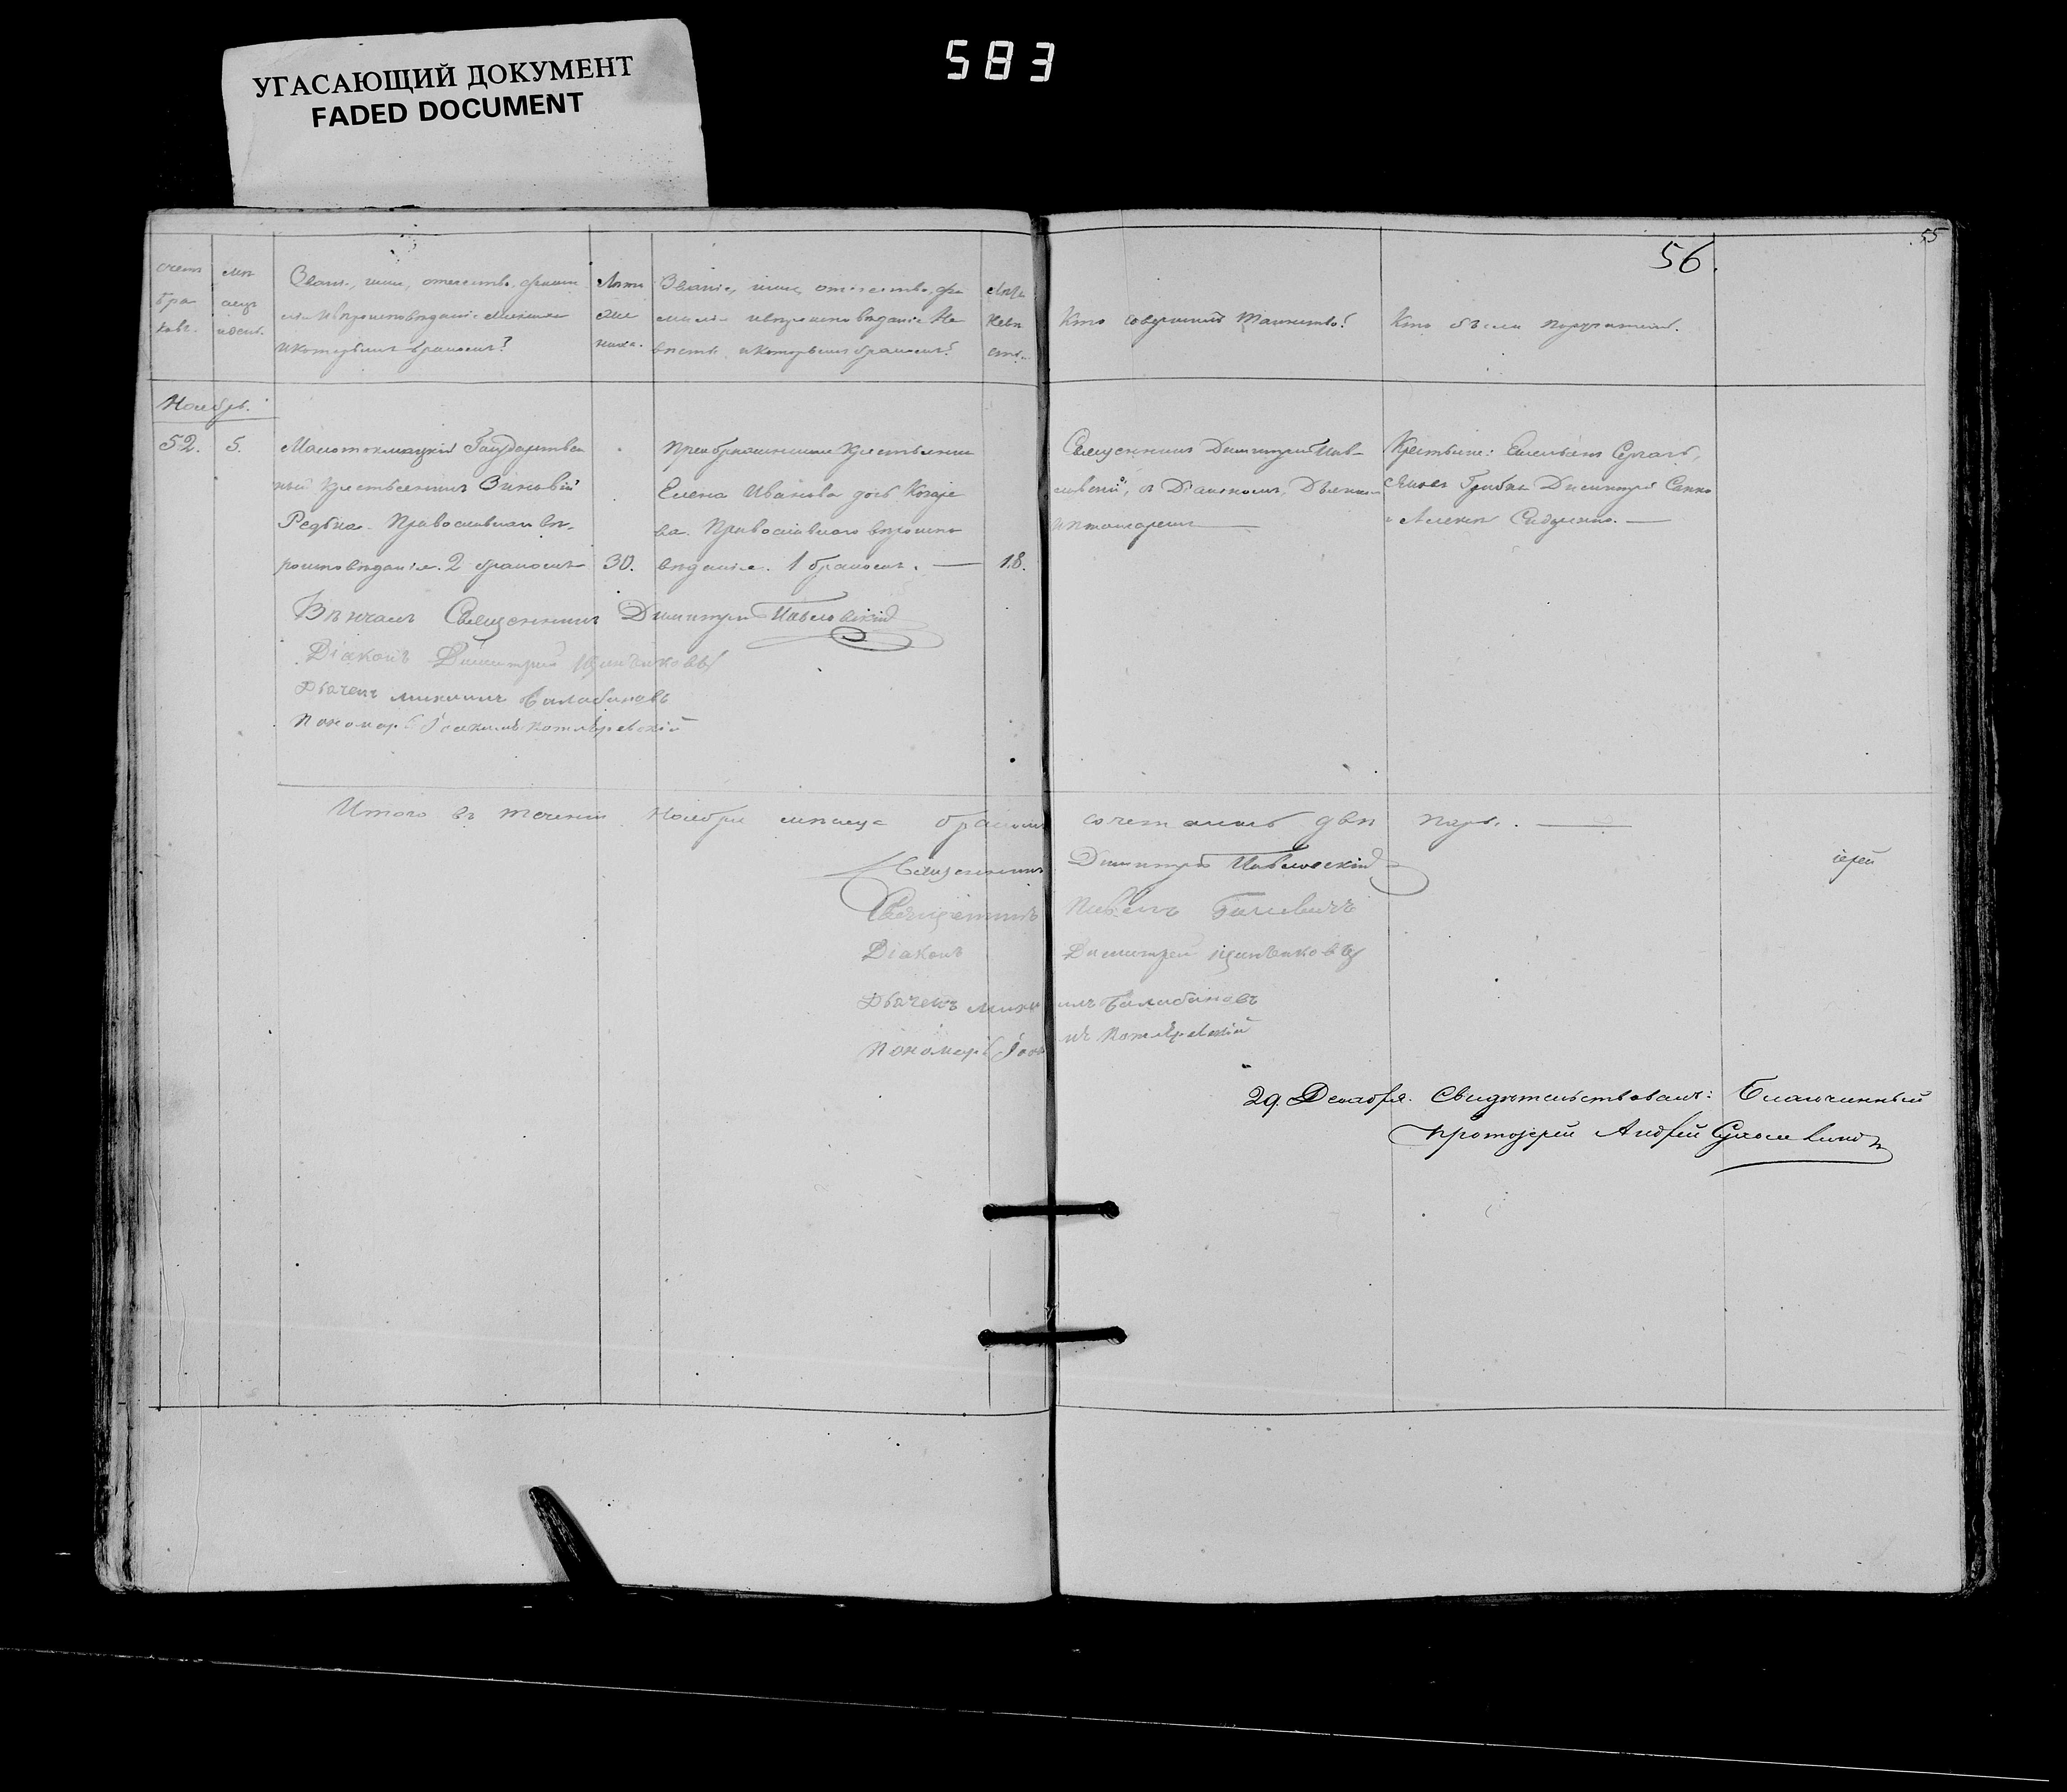 УГАСАЮЩИЙ ДОКУМЕНТ
FADED DOCUMENT
583
56.
55
счетъ
бра
ковъ.
мѣ
сяцъ
и день.
Званіе, имя, отечество, фами
лія и вѣроисповѣданіе жениха
и которымъ бракомъ?
Лѣта
же
ниха.
Званіе, имя, отечество, фа
милія и вѣроисповѣданіе Не
вѣсты, и которымъ бракомъ?
Лѣта
Невѣ
сты.
Кто совершилъ Таинство?
Кто были поручители.
Ноябрь.
52.
5.
Малотокмацкій Государствен
ный крестьянинъ Зиновій
Редька. Православнаго вѣ-
роисповѣданія. 2 бракомъ
30.
крестьянин
Елена Иванова дочь
ва. Православнаго вѣроиспо
вѣданія. 1 бракомъ.
18.
Священникъ Димитрій Пав-
ловскій, съ Діакономъ, Дьячкомъ
и пономаремъ
Крестьяне: Емельянъ
Яковъ Грибъ Димитрій
и Алексѣй Сидоренко.
Вѣнчалъ Священникъ Димитрій Павловскій
Діаконъ Димитрій
Дьячекъ Михаилъ Балабановъ
Пономарь Іоакимъ Котляревскій
Итого въ теченіи Ноября мѣсяца бракомъ сочетались двѣ пары.
Священникъ Димитрій Павловскій
іерей
Священникъ Павелъ
Діаконъ Димитрій
Дьячекъ Михаилъ Балабановъ
Пономарь Іоакимъ Котляревскій
29. Декабря. Свидѣтельствовалъ: Благочинный
протоіерей Андрей